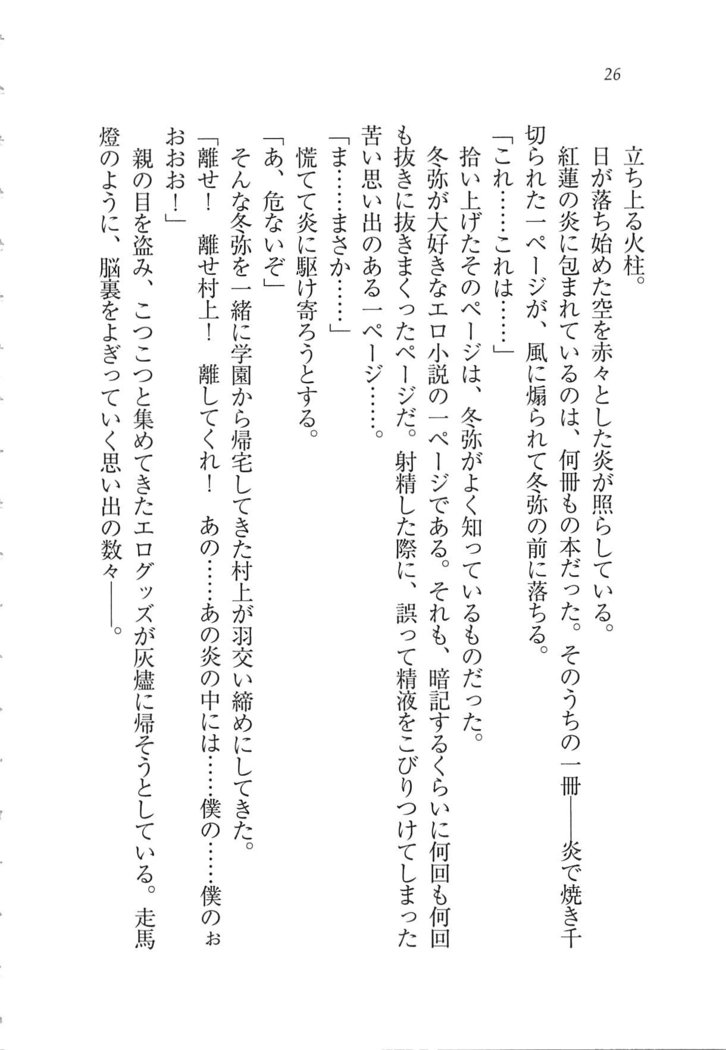 26
立ち上る火柱。
日が落ち始めた空を赤々とした炎が照らしている。
紅蓮の炎に包まれているのは、何冊もの本だった。そのうちの一冊――炎で焼き千
切られた一ページが、風に煽られて冬弥の前に落ちる。
「これ……これは……」
拾い上げたそのページは、冬弥がよく知っているものだった。
冬弥が大好きなエロ小説の一ページである。それも、暗記するくらいに何回も何回
も抜きに抜きまくったページだ。射精した際に、誤って精液をこびりつけてしまった
苦い思い出のある一ページ……。
「ま……まさか……」
慌てて炎に駆け寄ろうとする。
「あ、危ないぞ」
そんな冬弥を一緒に学園から帰宅してきた村上が羽交い締めにしてきた。
「離せ！　離せ村上！　離してくれ！　あの……あの炎の中には……僕の……僕のぉ
おおお！」
親の目を盗み、こつこつと集めてきたエログッズが灰燼に帰そうとしている。走馬
燈のように、脳裏をよぎっていく思い出の数々――。